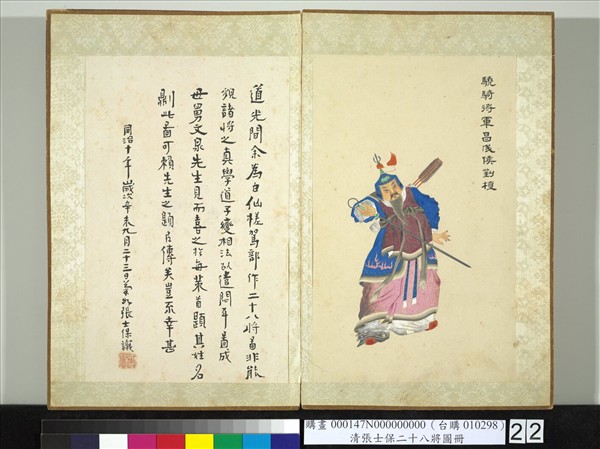 驍騎將軍昌成侯劉植
道光間余為白仙槎駕部作二十八將圖非能
貌諸將之真學道子變相法以遣閒耳圖成
母舅文泉先生見而喜之於每葉首題其姓名
劇此圖可賴先生之題以傳矣豈不幸甚
同治十年歲次辛未九月二十三日菊如張士保識
購畫 000147N000000000 (台購 010298)
清張士保二十八將圖冊
22